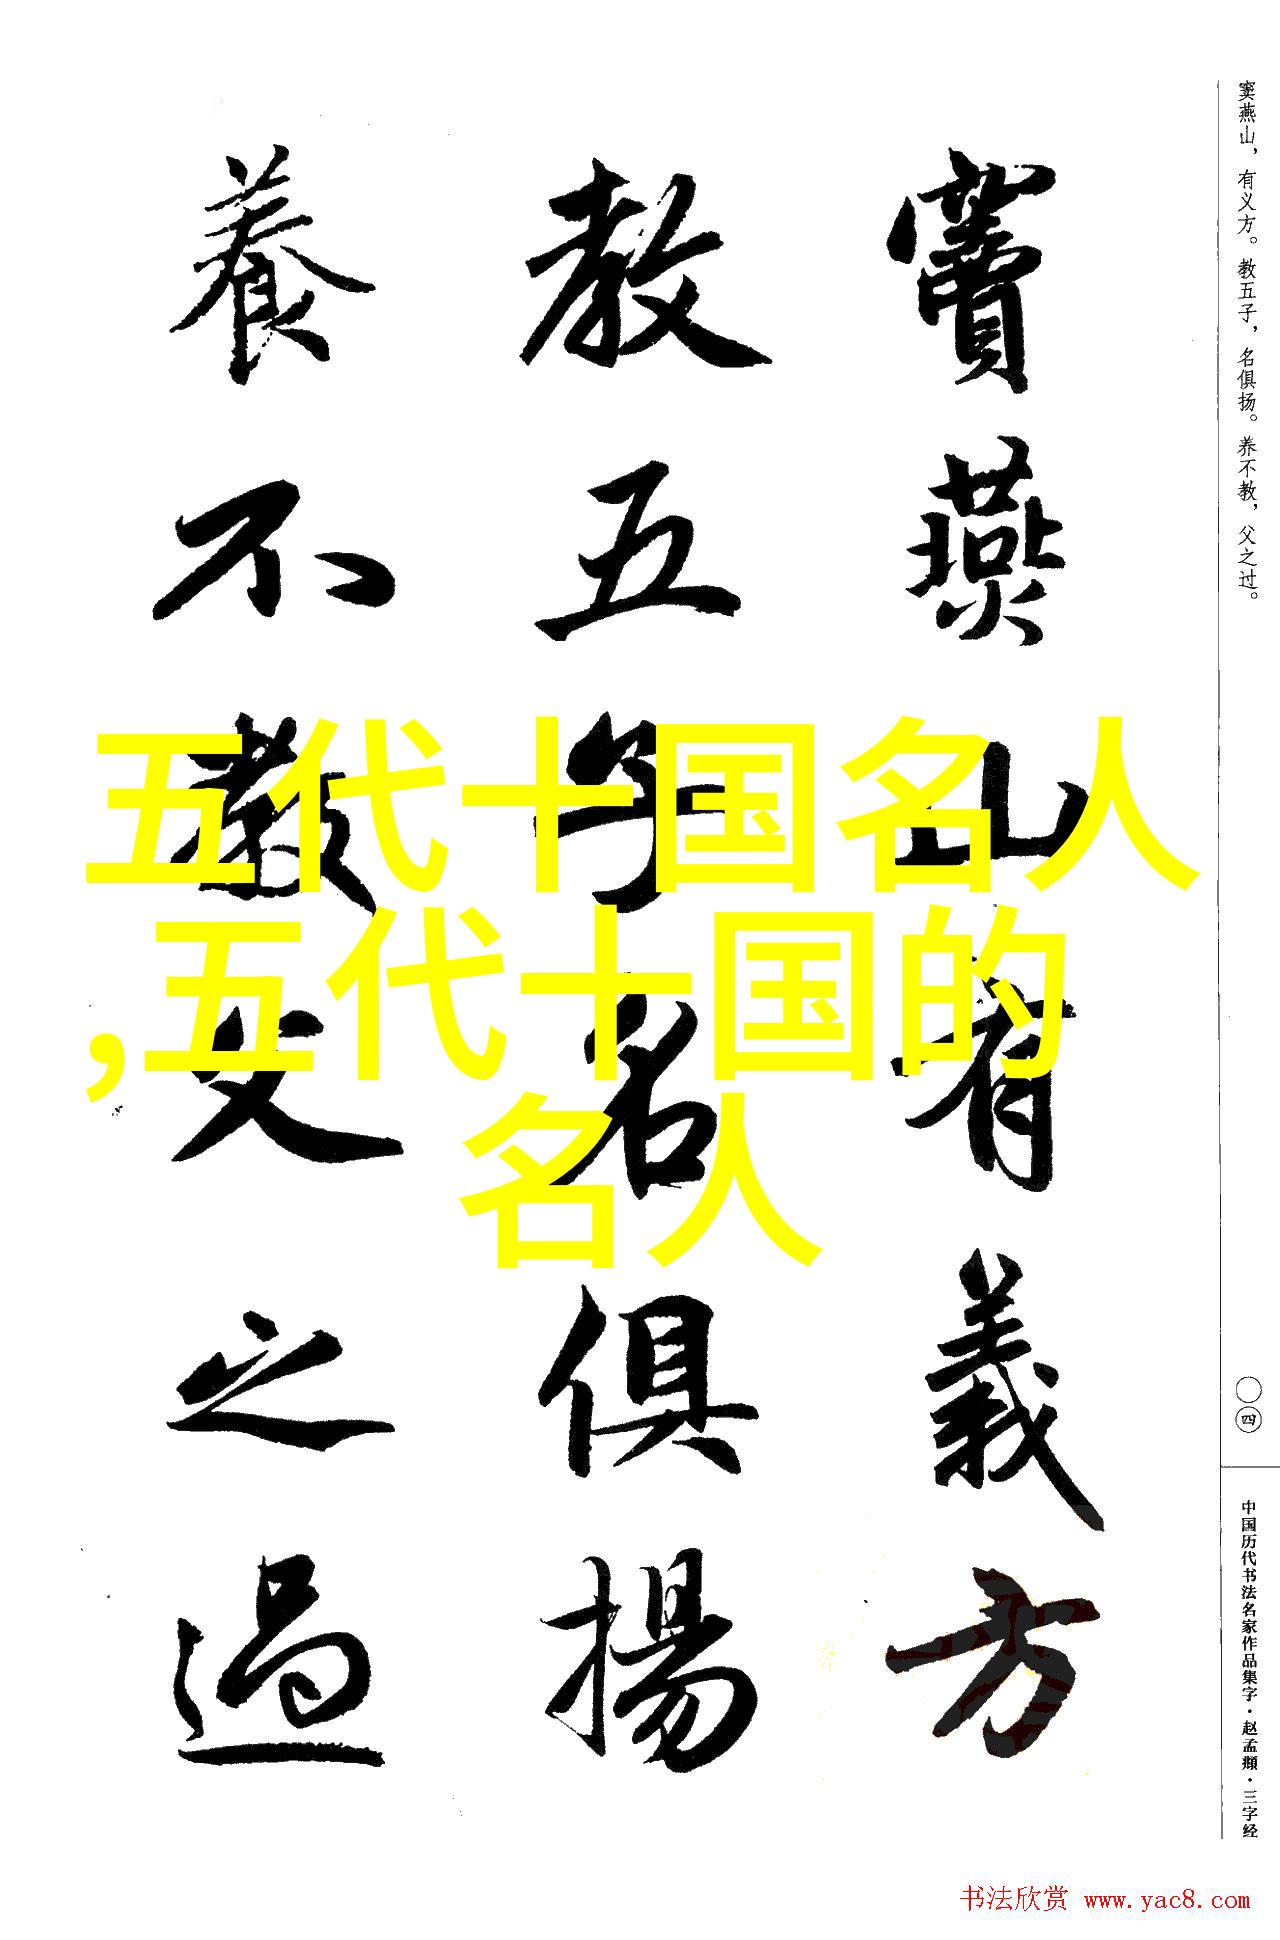 窦燕山，有义方。教五子，名俱扬。养不教，父之过。
竇燕山有義方
教五子名俱揚
養不教父之過
五代十国名人
,五代十国的
名人
〇四
中国历代书法名家作品集字·赵孟頫·三字经
书法欣赏 www.yac8.com